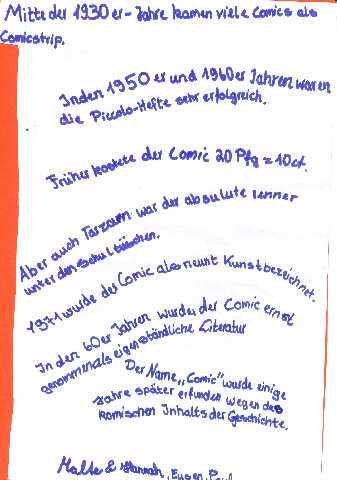 Mitte der 1930er-Jahre kamen viele Comics als
Comicstrip.
In den 1950er und 1960er Jahren waren
die Piccolo-Hefte sehr erfolgreich.
Früher kostete der Comic 20 Pfg = 10ct.
Aber auch Tarzan war der absolute renner
unter den Schul tüschen.
1971 wurde der Comic als neunt Kunst bezeichnet.
In den 60er Jahren wurde der Comic ernst
genommen als eigenständliche Literatur
Der Name "Comic" wurde einige
Jahre später erfunden wegen des
komischen Inhalts der Geschichte.
Malte & Hannah, Eugen, Paul